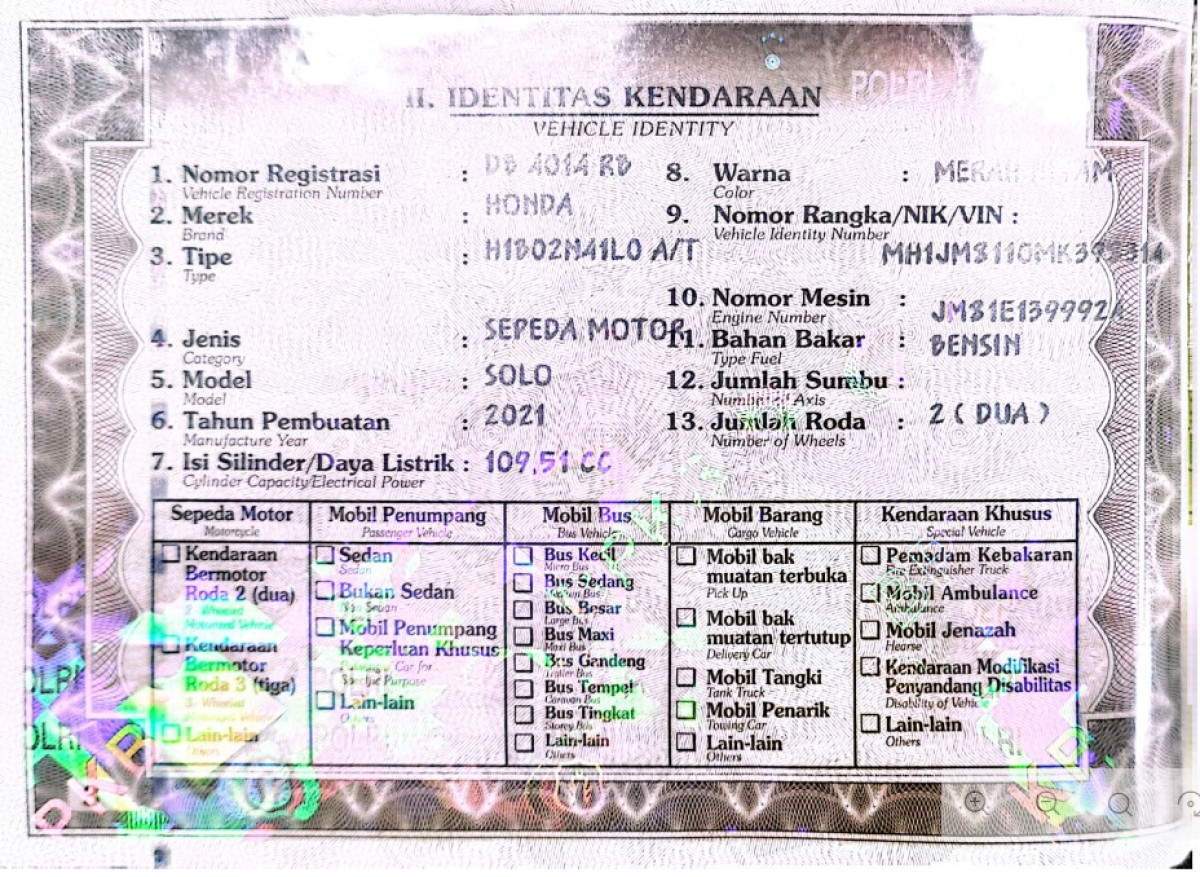 POLRI
II. IDENTITAS KENDARAAN
VEHICLE IDENTITY
1. Nomor Registrasi : DB 4014 RB
Vehicle Registration Number
2. Merek : HONDA
Brand
3. Tipe : H1B02N41L0 A/T
Type
4. Jenis : SEPEDA MOTOR
Category
5. Model : SOLO
Model
6. Tahun Pembuatan : 2021
Manufacture Year
7. Isi Silinder/Daya Listrik : 109,51 CC
Cylinder Capacity/Electrical Power
8. Warna : MERAH
Color
9. Nomor Rangka/NIK/VIN :
Vehicle Identity Number
10. Nomor Mesin :
Engine Number
11. Bahan Bakar : BENSIN
Type Fuel
12. Jumlah Sumbu :
Number of Axis
13. Jumlah Roda : 2 ( DUA )
Number of Wheels
Sepeda Motor
Motorcycle
Kendaraan
Bermotor
Roda 2 (dua)
2 Wheeled
Motorized Vehicle
Kendaraan
Bermotor
Roda 3 (tiga)
3 Wheeled
Motorized Vehicle
Lain-lain
Others
Mobil Penumpang
Passenger Vehicle
Sedan
Sedan
Bukan Sedan
Non Sedan
Mobil Penumpang
Keperluan Khusus
Car for
Specific Purpose
Lain-lain
Others
Mobil Bus
Bus Vehicle
Bus Kecil
Micro Bus
Bus Sedang
Bus
Bus Besar
Large Bus
Bus Maxi
Maxi Bus
Bus Gandeng
Trailer Bus
Bus Tempel
Caravan Bus
Bus Tingkat
Storey Bus
Lain-lain
Others
Mobil Barang
Cargo Vehicle
Mobil bak
muatan terbuka
Pick Up
Mobil bak
muatan tertutup
Delivery Car
Mobil Tangki
Tank Truck
Mobil Penarik
Towing Car
Lain-lain
Others
Kendaraan Khusus
Special Vehicle
Pemadam Kebakaran
Fire Extinguisher Truck
Mobil Ambulance
Ambulance
Mobil Jenazah
Hearse
Kendaraan Modifikasi
Penyandang Disabilitas
Disability of Vehicle
Lain-lain
Others